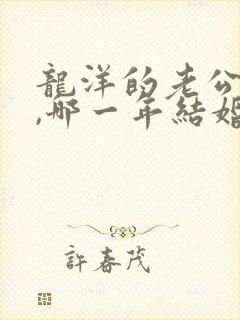 龍洋的老公
,哪一年結婚
許春茂